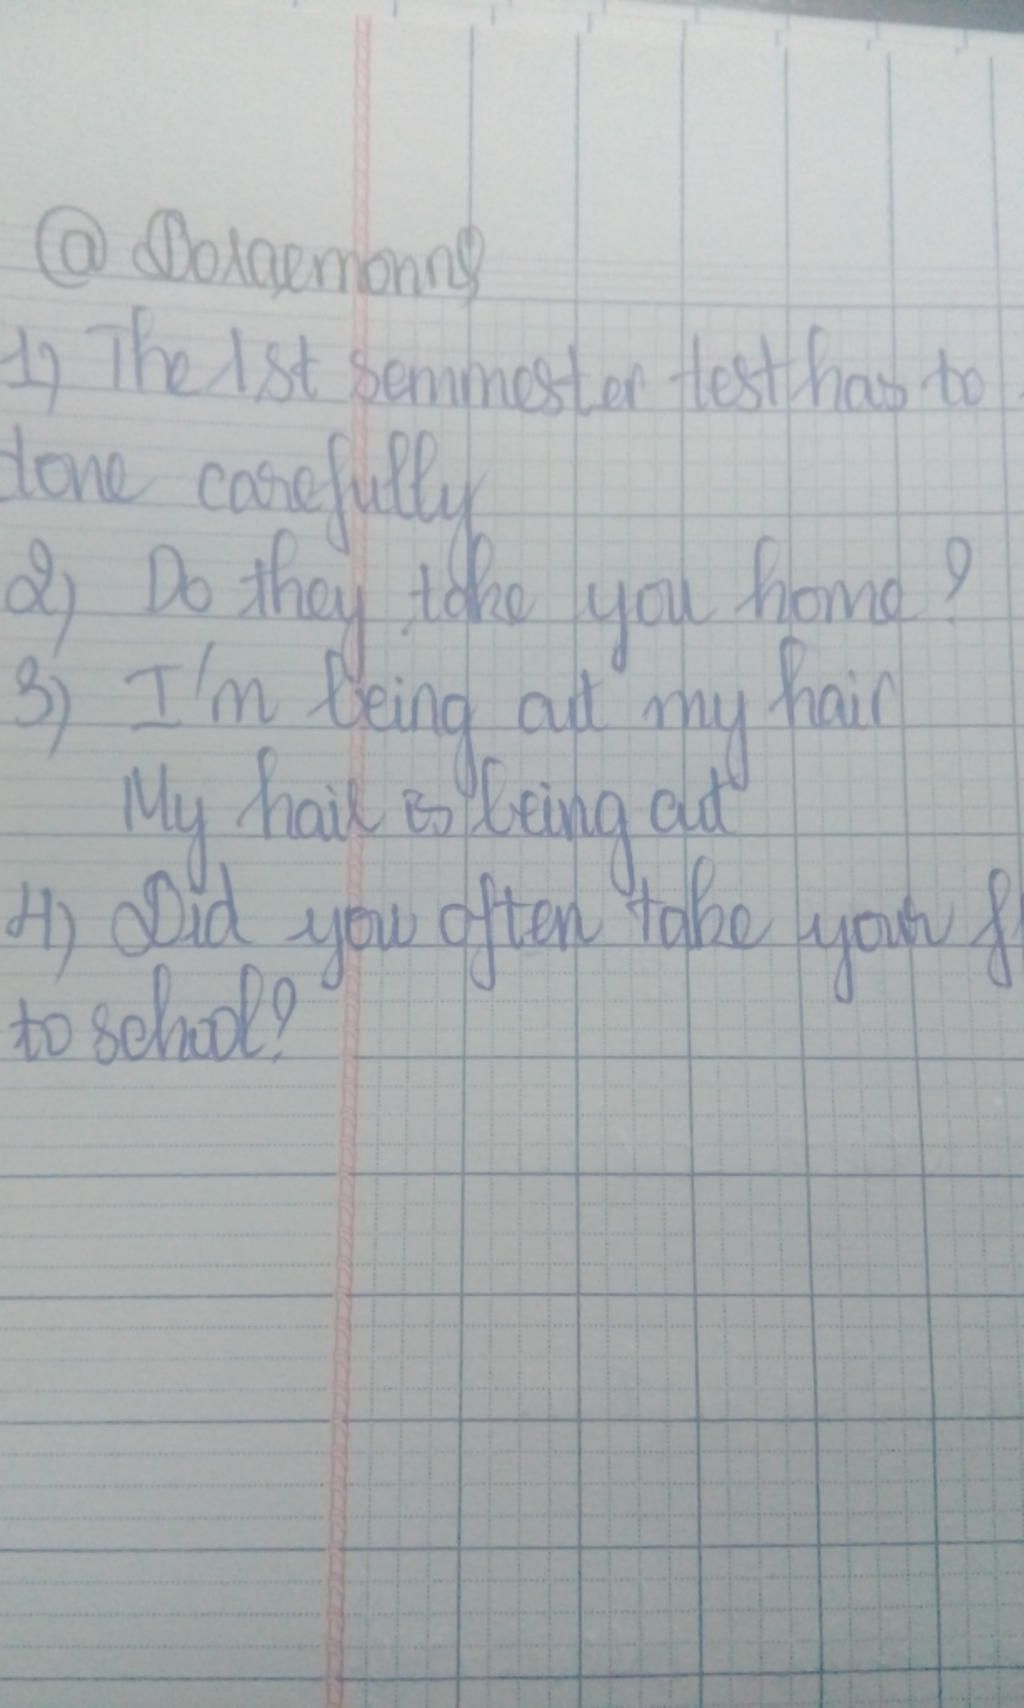 @ Doraemonn8
1) The 1st semmester test has to
done carefully
2) Do they take you home?
3) I'm being cut my hair
My hair is being cut
4) Did you often take your
to school?